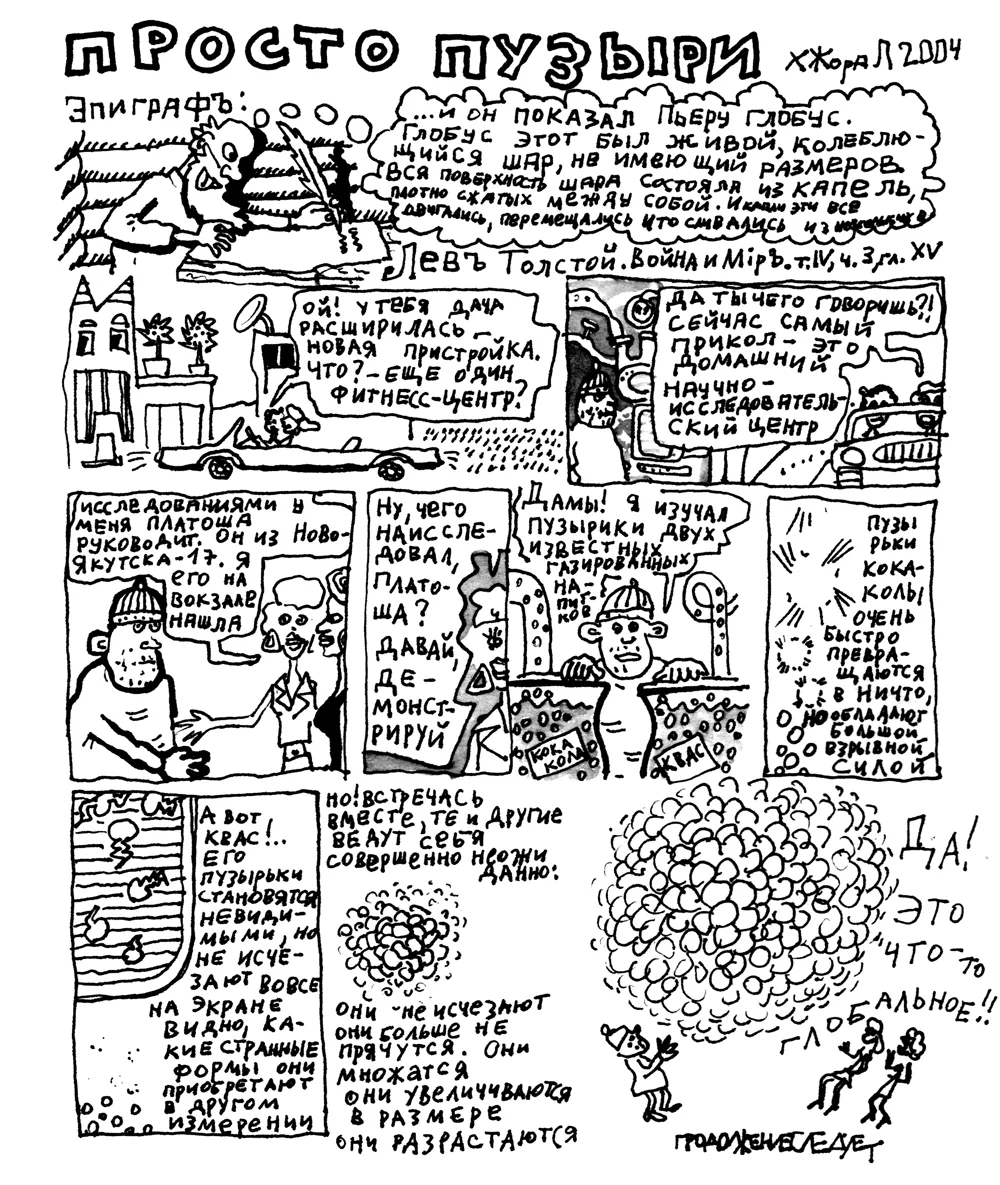 ПРОСТО ПУЗЫРИ
хЖора Л 2004
Эпиграфъ:
...и он показал Пьеру глобус.
Глобус этот был живой, колеблю-
щийся шар, не имеющий размеров.
Вся поверхность шара состояла из капель,
плотно сжатых между собой. И капли эти все
двигались, перемещались и то сливались из
Левъ Толстой. Война и Мiръ. т. IV, ч. 3, гл. XV
Ой! У тебя дача
расширилась –
новая пристройка.
Что? – еще один
фитнесс-центр?
Да ты чего говоришь?!
Сейчас самый
прикол – это
домашний
научно-
исследователь-
ский центр
Исследованиями у
меня Платоша
руководит. Он из Ново-
якутска-17. Я
его на
вокзале
нашла
Ну, чего
наиссле-
довал,
Плато-
ша?
Давай,
де-
монст-
рируй
Дамы! Я изучал
пузырики двух
известных
газированных
на-
пит-
ков
Кока
кола
Квас
Пузы
рьки
кока-
колы
очень
быстро
превра-
щаются
в ничто,
но обладают
большой
взрывной
силой
А вот
квас!..
Его
пузырьки
становятся
невиди-
мыми, но
не исче-
зают вовсе
на экране
видно, ка-
кие странные
формы они
приобретают
в другом
измерении
Но! Встречась
вместе, те и другие
ведут себя
совершенно неожи
данно:
они не исчезают
они больше не
прячутся. Они
множатся
они увеличиваются
в размере
они разрастаются
Да!
Это
что-то
глобальное!!
Продолжение следует